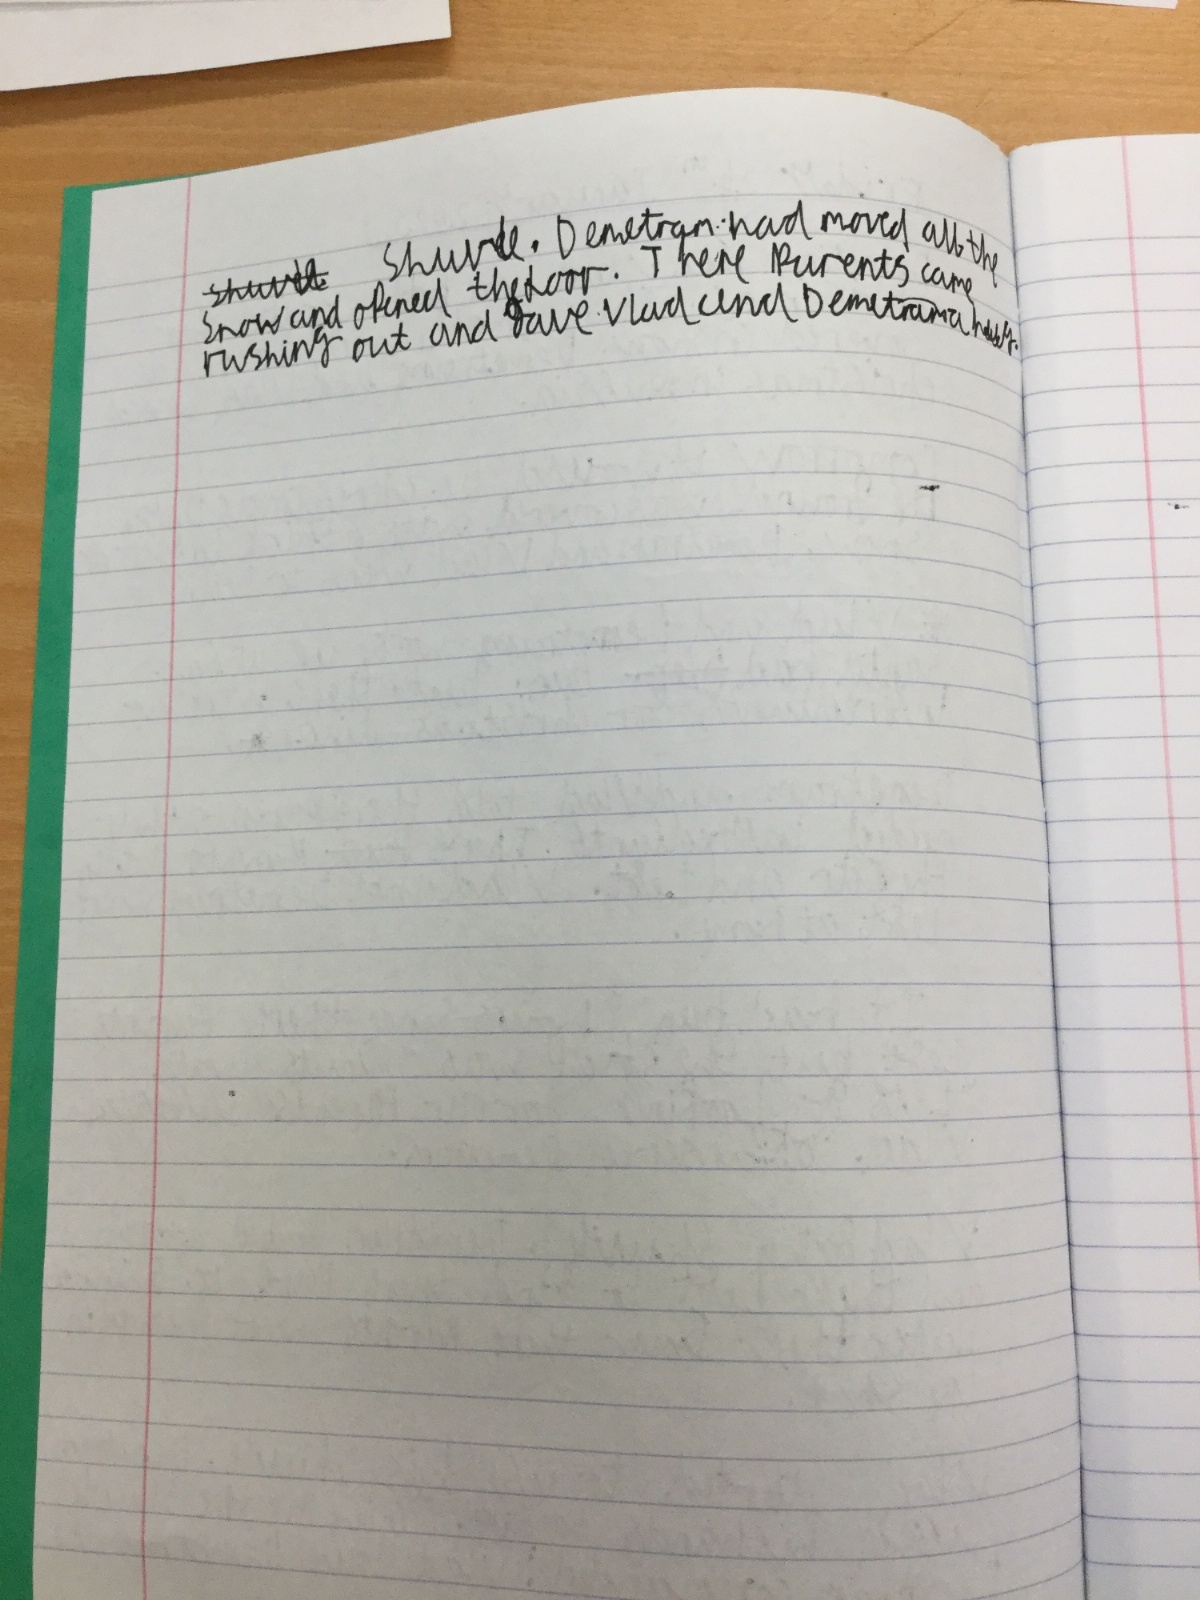 Shuvle. Demetram had moved all the
snow and opened the door. There Parents came
rushing out and gave vlad and Demetrama hug.